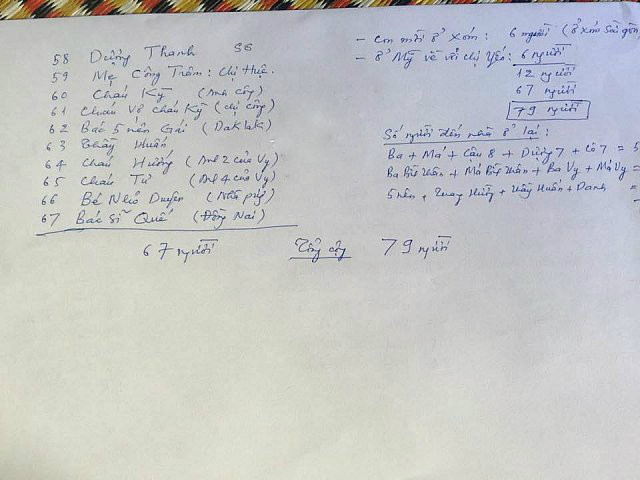 58 Dưỡng Thanh S6
59 Mẹ Công Trâm : Chị Huệ.
60 Cháu Kỳ (Anh Công)
61 Cháu Vợ cháu Kỳ (chị Công)
62 Bác 5 nên Gái (DakLak)
63 Thầy Huấn
64 Cháu Hương (Anh 2 của Vy)
65 Cháu Tư (Anh 4 của Vy)
66 Bé Nhỏ Duyên (Nhà phố)
67 Bác Sĩ Quế (Đồng Nai)
67 người Tổng cộng 79 người
- Con mời ở xóm : 6 người (ở xóm Sài gòn
- ở Mỹ về với chị Yến : 6 người
12 người
67 người
79 người
Số người đến nhà ở lại :
Ba + Má + Cậu 8 + Dượng 7 + Cô 7 =
Ba + Má + Ba Vy + Má Vy =
5 nên + + Thầy Huấn + Danh =